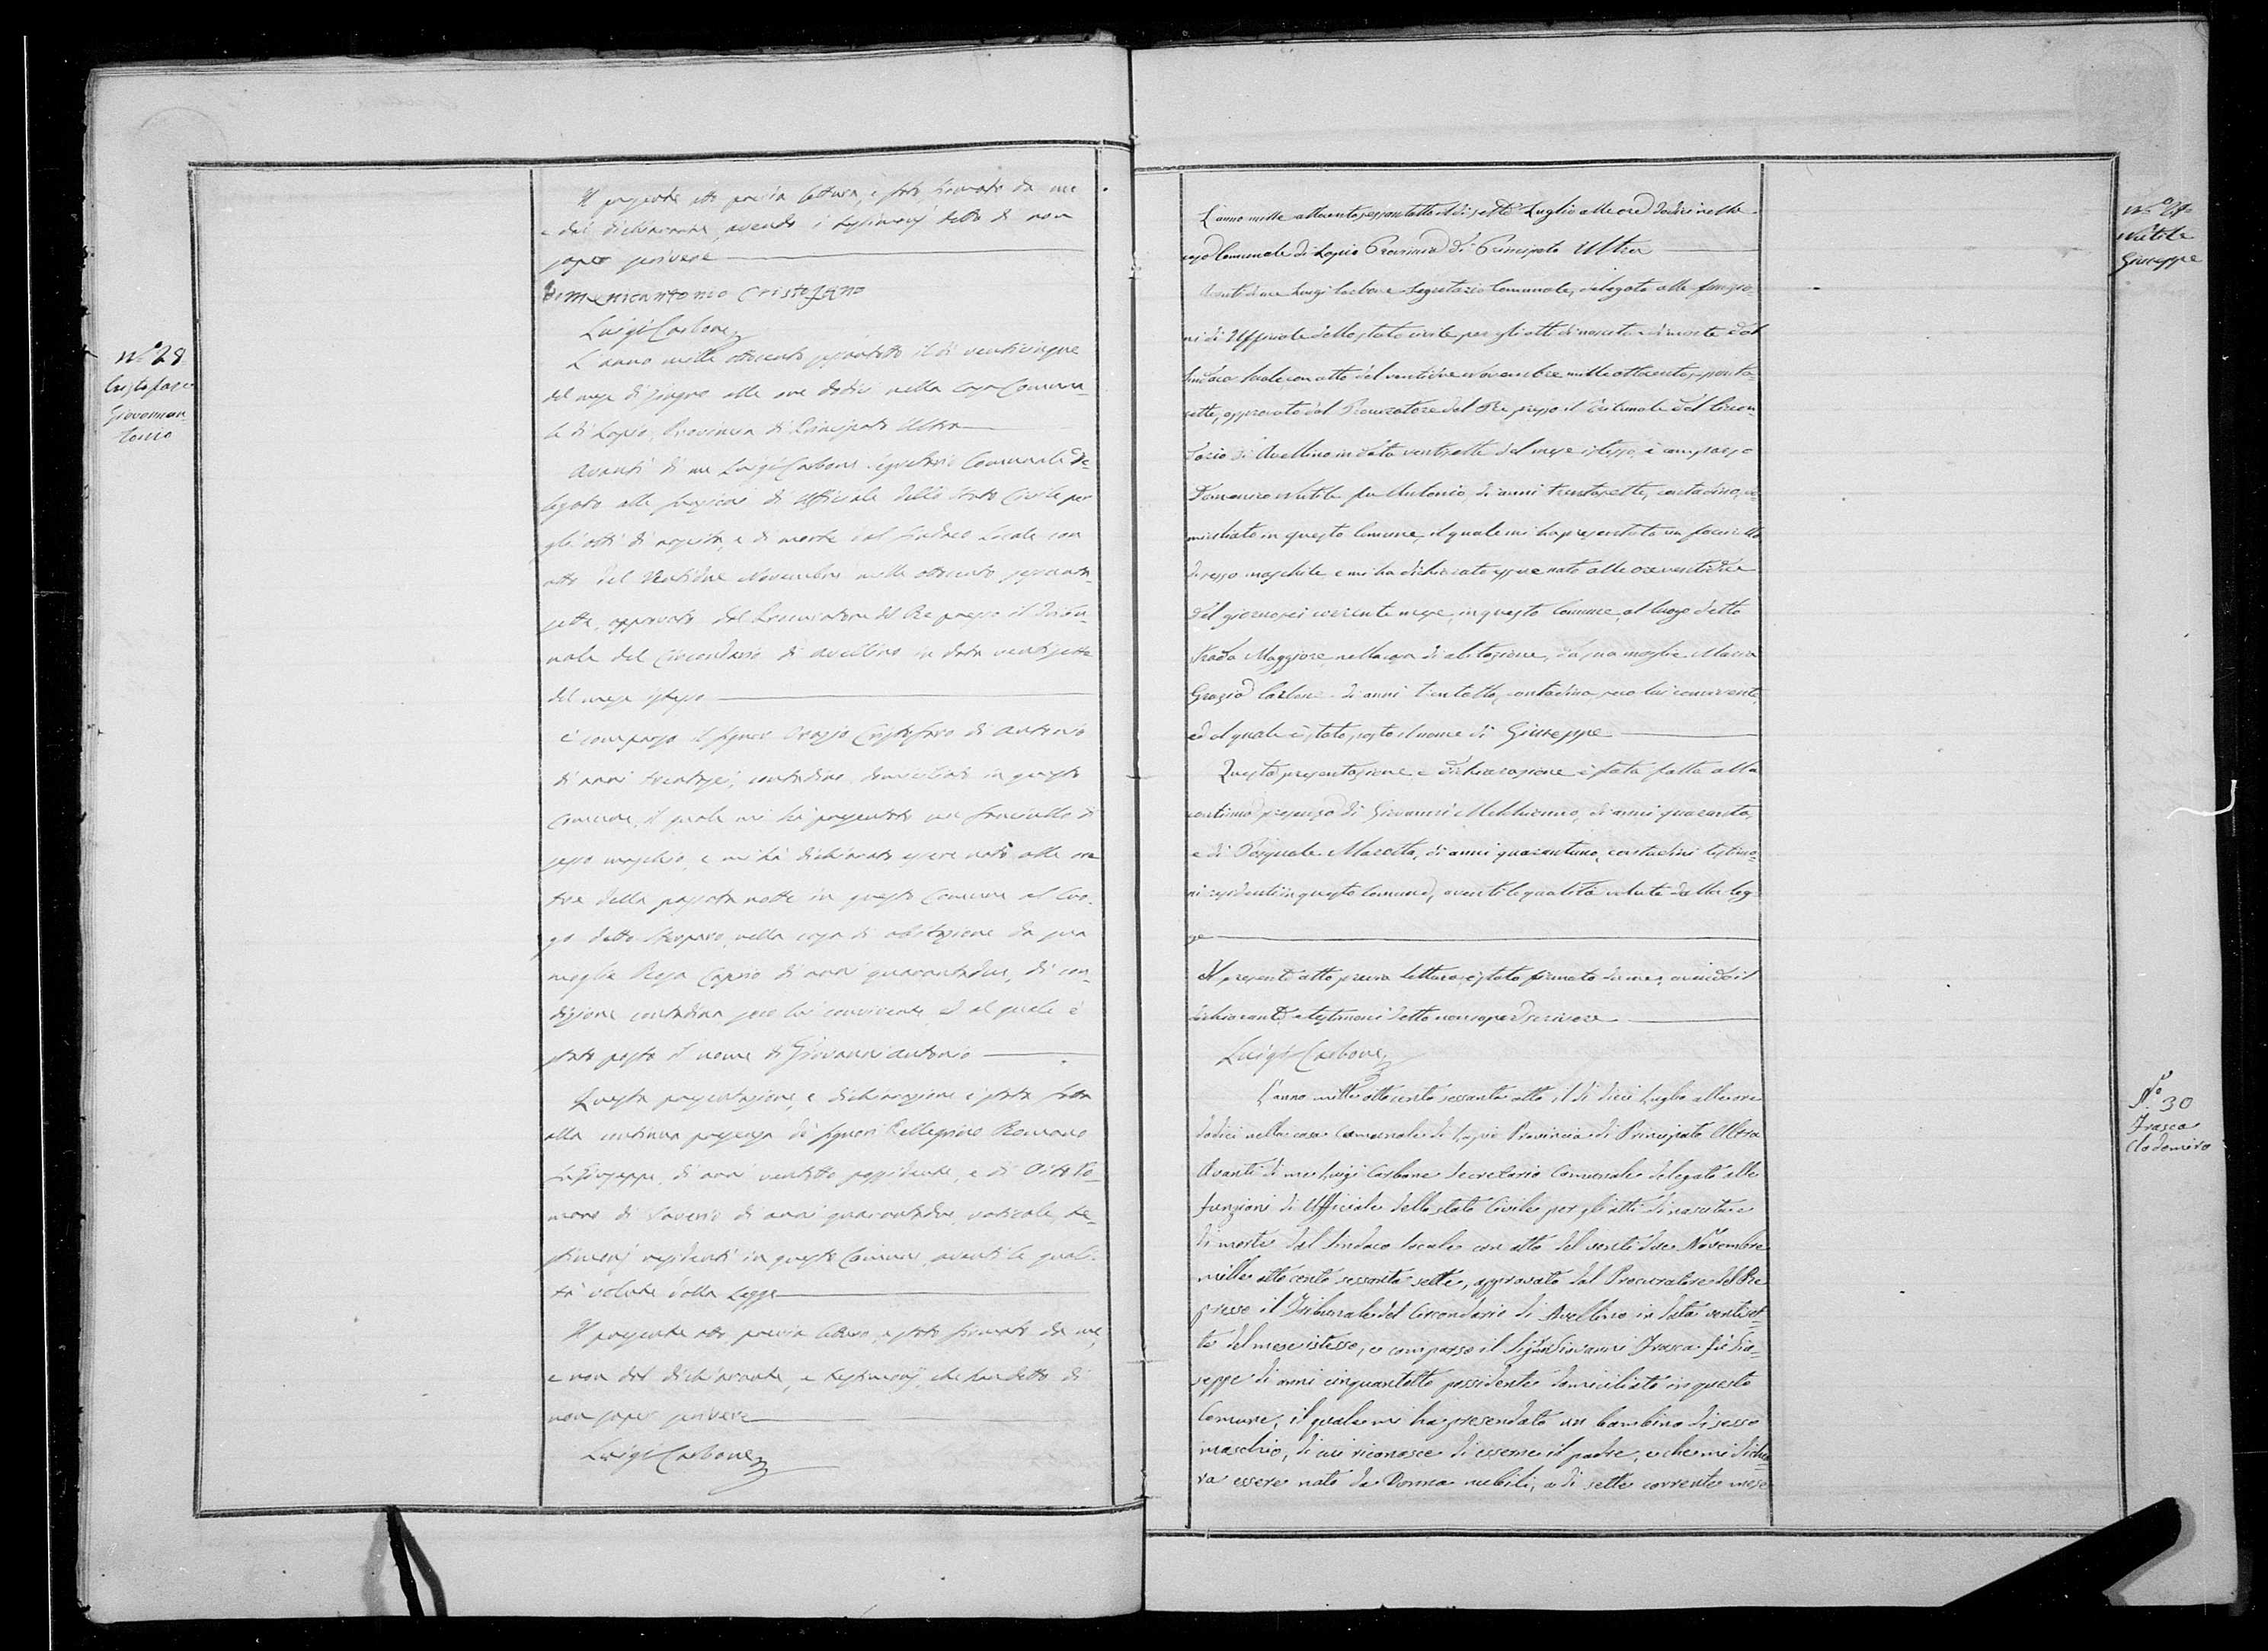 Il presente atto previa lettura, è stato firmato da me
e dal dichiarante, avendo i testimonj detto di non
saper scrivere
Domenicantonio Cristofano
Luigi Carbone
N.º 28
Cristofaro
Giovannan
tonio
L'anno mille ottocento sessantotto il dì venticinque
del mese di giugno alle ore dodici nella Casa Comuna-
le di Lapio, Provincia di Principato Ultra
Avanti di me Luigi Carbone Segretario Comunale de-
legato alle funzioni di Ufficiale dello Stato Civile per
gli atti di nascita, e di morte dal Sindaco Locale con
atto del Ventidue Novembre mille ottocento sessanta-
sette, approvato dal Procuratore del Re presso il Tribu-
nale del Circondario di Avellino in data ventisette
del mese istesso
è comparso il signor Orazio Cristofaro di Antonio
di anni trentasei, contadino domiciliato in questo
Comune, il quale mi ha presentato un fanciullo di
sesso maschio, e mi ha dichiarato essere nato alle ore
tre della passata notte in questo Comune al luo-
go detto, nella casa di abitazione da sua
moglie Rosa Caprio di anni quarantadue, di con-
dizione contadina seco lui convivente, ed al quale è
stato posto il nome di Giovannantonio
Questa presentazione, e dichiarazione è stata fatta
alla continua presenza di signori Pellegrino Romano
fu Giuseppe, di anni ventotto possidente, e di Vito Ro-
mano di Saverio di anni quarantadue, vaticale, te-
stimonj residenti in questo Comune, aventi le quali-
tà volute dalla Legge
Il presente atto, previa lettura, è stato firmato da me,
e non dal dichiarante, e testimonj, che han detto di
non saper scrivere
Luigi Carbone
Nutile
Giuseppe
L'anno mille ottocento sessantotto il dì sette Luglio alle ore dodici nella
casa Comunale di Lapio Provincia di Principato Ultra
Avanti di me Luigi Carbone Segretario Comunale, delegato alle funzio
ni di Uffiziale dello stato civile per gli atti di nascita e di morte dal
Sindaco locale con atto del ventidue Novembre mille ottocento sessanta-
sette, approvato dal Procuratore del Re presso il Tribunale del Circon-
dario di Avellino in data ventisette del mese istesso, è comparso
Domenico Nutile fu Antonio, di anni trentasette, contadino, do-
miciliato in questo Comune, il quale mi ha presentato un fanciullo
di sesso maschile, e mi ha dichiarato essere nato alle ore ventidue
del giorno sei corrente mese, in questo Comune, al luogo detto
Strada Maggiore, nella casa di abitazione, da sua moglie Maria
Grazia Carbone di anni trentotto, contadina, seco lui convivente,
ed al quale è stato posto il nome di Giuseppe
Questa presentazione e dichiarazione è stata fatta alla
continua presenza di Giovanni Melchionno, di anni quaranta,
e di Pasquale Marotta, di anni quarantuno, contadini testimo-
ni residenti in questo Comune, aventi le qualità volute dalla leg
ge
Il presente atto previa lettura, è stato firmato da me, avendo il
dichiarante e testimoni detto non saper scrivere
Luigi Carbone
N.º 30
Frasca
Clodomiro
L'anno mille ottocento sessanta otto, il dì dieci Luglio alle ore
dodici nella casa Comunale di Lapio Provincia di Principato Ultra
Avanti di me Luigi Carbone Secretario Comunale delegato alle
funzioni di Ufficiale dello stato Civile per gli atti di nascita e
di morte dal Sindaco locale con atto del venti due Novembre
mille otto cento sessanta sette, approvato dal Procuratore del Re
presso il Tribunale del Circondario di Avellino in data ventiset-
te del mese istesso, è comparso il Signor Giovanni Frasca fu Giu-
seppe di anni cinquantotto possidente domiciliato in questo
Comune, il quale mi ha presendato un bambino di sesso
maschio, di cui riconosce di esserne il padre, e che mi dichia-
ra essere nato da Donna nubile, a dì sette corrente mese